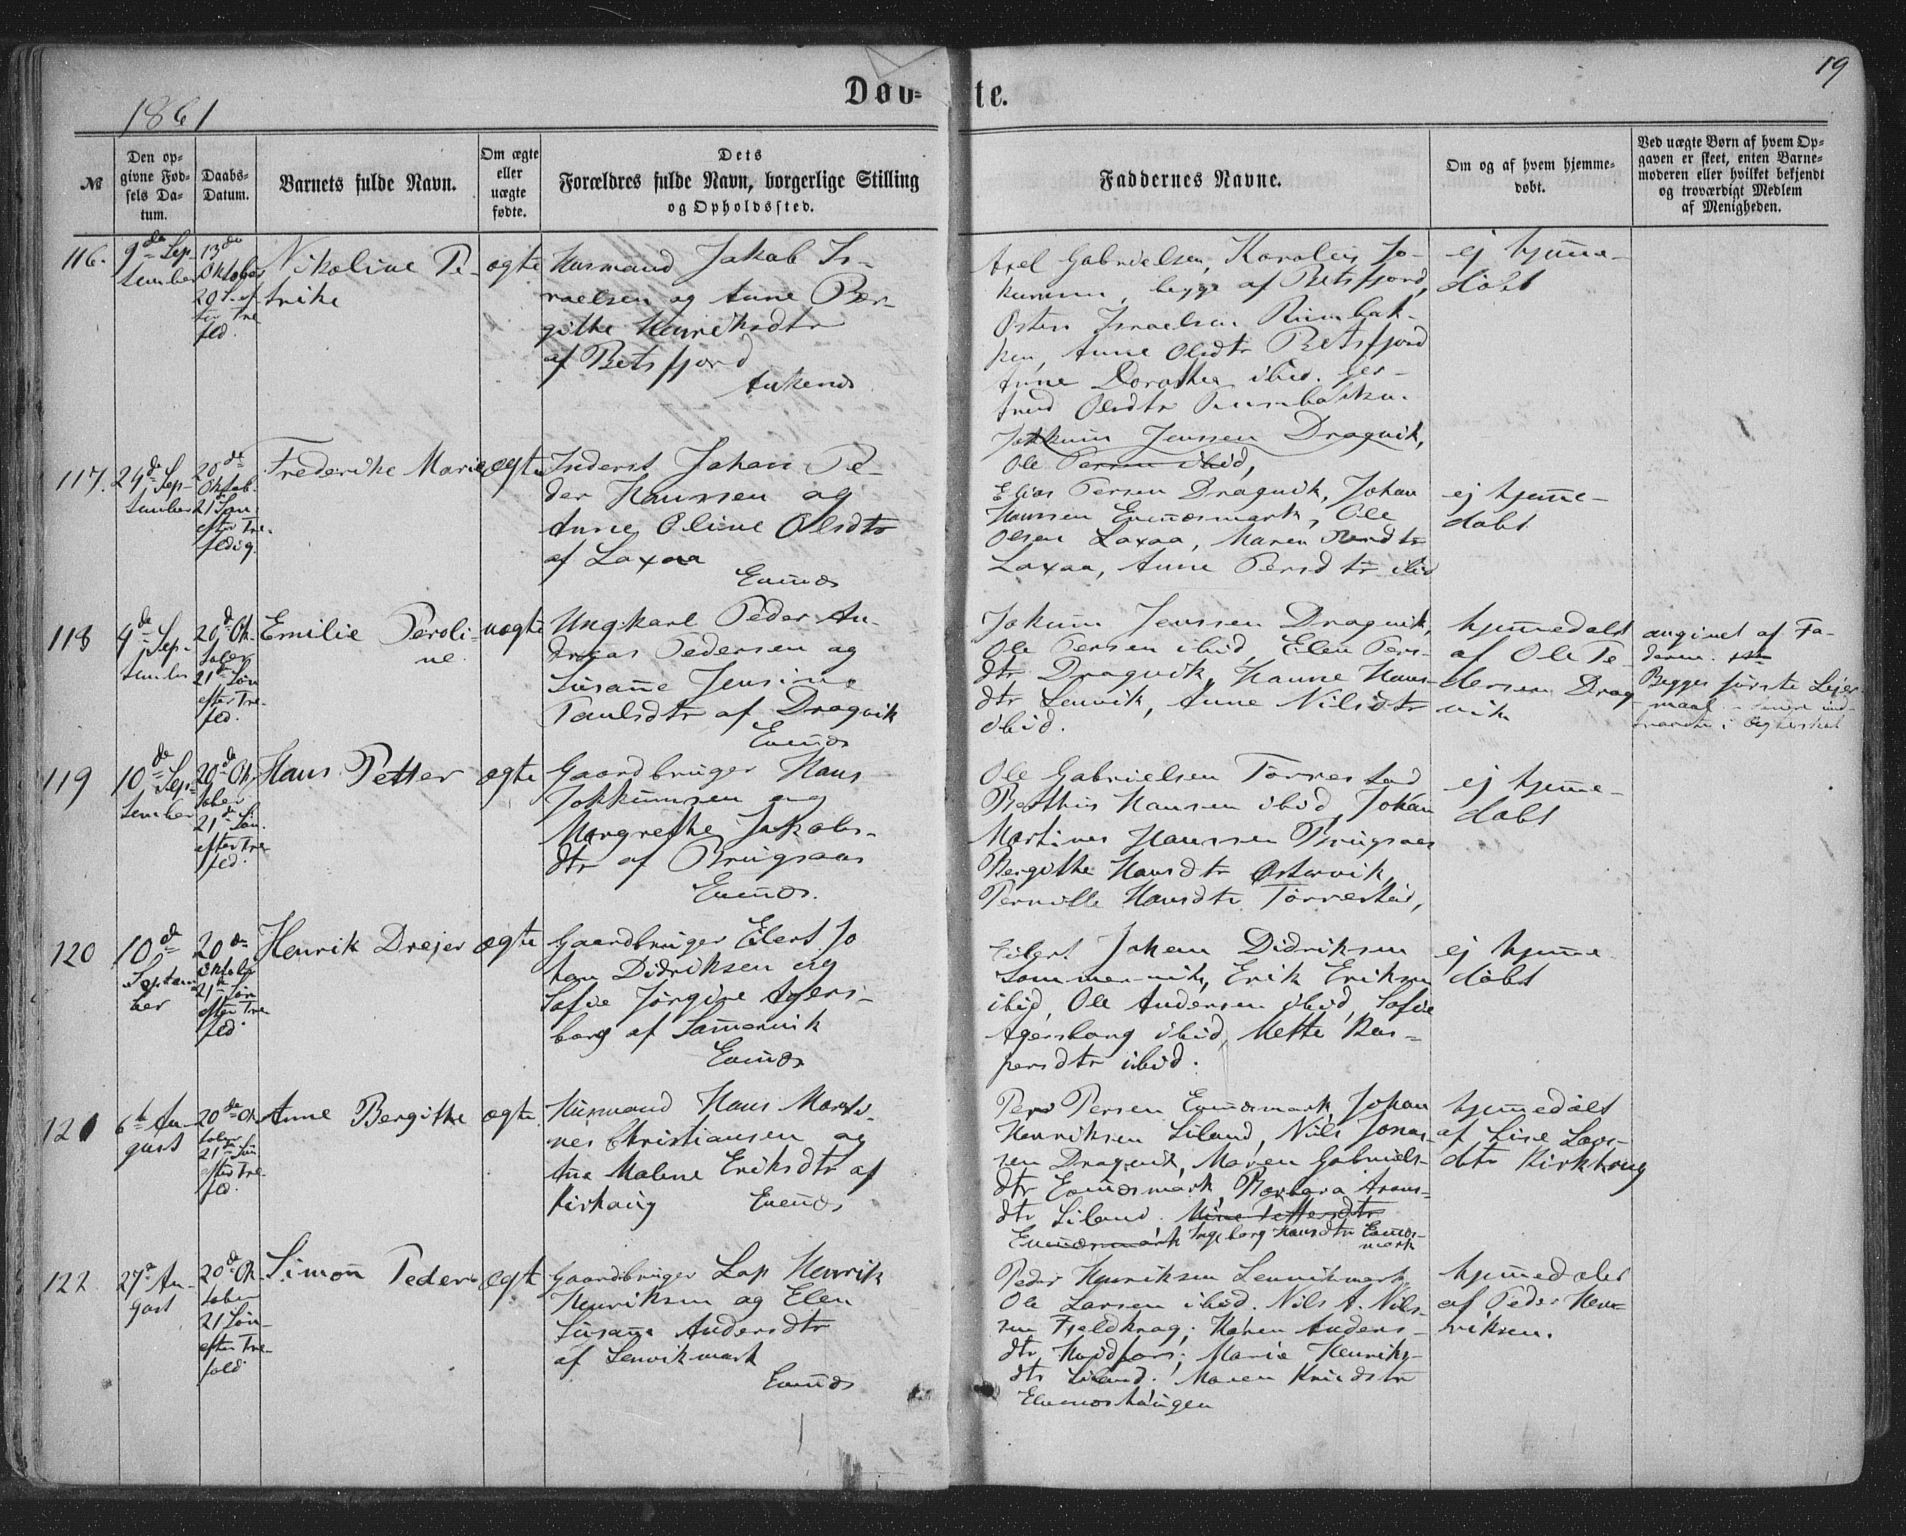 19
1861
Døb-
te.
№
Den op-
givne Fød-
sels Da-
tum.
Daabs-
Datum.
Barnets fulde Navn.
Om ægte
eller
uægte
fødte.
Dets
Forældres fulde Navn, borgerlige Stilling
og Opholdssted.
Faddernes Navne.
Om og af hvem hjemme-
døbt.
Ved uægte Børn af hvem Op-
gaven er skeet, enten Barne-
moderen eller hvilket bekjendt
og troværdigt Medlem
af Menigheden.
116.
9de Sep-
tember
13de
Oktober
20 S. ef
ter Tre
fld.
Nikoline Pe-
trike
ægte
Husmand Jakob Is-
raelsen og Anne Ber-
githe Henriksdtr
af Betsfjord
Ankenes
Axel Gabrielsen, Karolius Jo-
kumsen, begge af Betsfjord,
Osten Israelsen Rumbak-
ken, Anne Olsdtr Betsfjord
Anne Dorothea ibid. Ger-
trud Olsdtr Rumbakken.
ej hjem̄e-
døbt
117.
24de Sep-
tember
20de
Oktob.
21 Søn
efter Tre-
foldig.
Frederike Marie
ægte
Inderst Johan Pe-
der Hanssen og
Anne Oline Olsdtr
af Laxaa
Evenæs
Jokkum Jenssen Dragvik,
Ole Persen ibid,
Elias Persen Dragvik, Johan
Hanssen Evenæsmark, Ole
Olsen Laxaa, Maren
Laxaa, Anne Persdtr ibid
ej hjem̄e-
døbt
118
4de Sep-
tember
20de Ok-
tober
21de Søn
efter Tre-
fld.
Emilie Peroli-
ne
uægte
Ungkarl Peder An-
dreas Pedersen og
Susan̄e Jensine
Paulsdtr af Dragvik
Evenæs
Jokum Jenssen Dragvik,
Ole Persen ibid, Elen Pers-
dtr Dragvik, Hanne Hans-
dtr Lenvik, Anne Nilsdtr
ibid.
hjem̄edøbt
af Ole Pe-
dersen Drag
vik
angivet af Fa-
deren.
Begges første Leier-
maal - senere ind-
traadte i Ægteskab
119
10de Sep-
tember
20de Ok-
tober
21de Søn.
efter Tre-
fld.
Hans Petter
ægte
Gaardbruger Hans
Jokkumsen og
Margrethe Jakobs-
dtr af Brugsaas
Evenæs.
Ole Gabrielsen Tørrestad
Berthus Hansen ibid, Johan
Martines Hanssen Brugsaas
Bergithe Hansdtr Østervik,
Pernille Hansdtr Tørrestad,
ej hjem̄e-
døbt
120
10de
Septem-
ber
20de
Oktober
21de Søn
efter Tre
fld.
Henrik Drejer
ægte
Gaardbruger Eilert Jo
han Didriksen og
Sofie Jørgine Agers-
borg af Sam̄ervik
Evenæs
Eilert Johan Didriksen
Sommervik, Erik Eriksen
ibid, Ole Andersen ibid, Sofie
Agersborg ibid, Mette Kas-
persdtr ibid.
ej hjem̄e-
døbt
121
6te Au-
gust
20de Ok
tober
21de Søn
efter Tre-
fld.
Anne Bergithe
ægte
Husmand Hans Marti-
nes Christiansen og
Ane Malene Eriksdtr af
Kirkaug
Evenæs
Pers Persen Evenæsmark, Johan
Henriksen Liland, Nils Jonas-
sen Dragvik, Maren Gabriels-
dtr Evenæsmark, Barbara Arons-
dtr Liland. Mine Pettersdtr
Evenæsmark Ingeborg Hansdtr Evenæs-
mark
hjem̄edøbt
af Lise Lars-
dtr Kirkhoug
122
27de Au-
gust
20de Ok-
tober
21 Søn-
efter Tre-
fold.
Simon Peder
ægte
Gaardbruger Lap Henrik
Henriksen og Elen
Susan̄e Andersdtr
af Lenvikmark
Evenæs
Peder Henriksen Lenvikmark,
Ole Larsen ibid. Nils A. Nils-
sen Fjeldkrog; Karen Anders-
dtr; Marie Henriks-
dtr Liland. Maren Knudsdtr
Evenæshaugen
hjem̄edøbt
af Peder Hen-
riksen.